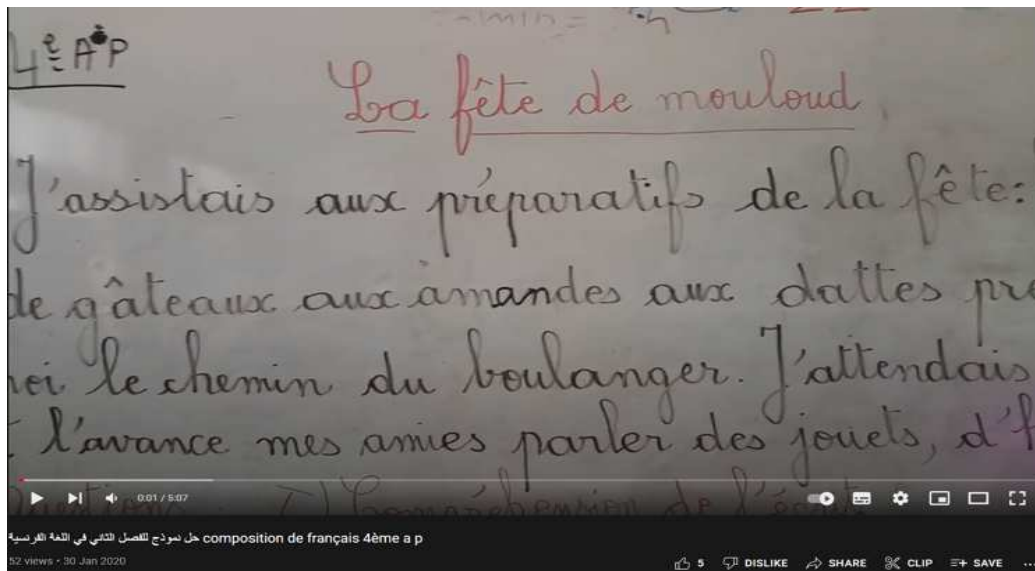 4e AP
La fête de mouloud
J'assistais aux préparatifs de la fête:
de gâteaux aux amandes aux dattes pré
le chemin du boulanger. J'attendais
l'avance mes amies parler des jouets, d'
I) Compréhension de l'écrit
0:01 / 5:07
حل نموذج للفصل الثاني في اللغة الفرنسية composition de français 4ème a p
52 views • 30 Jan 2020
5 DISLIKE SHARE CLIP SAVE